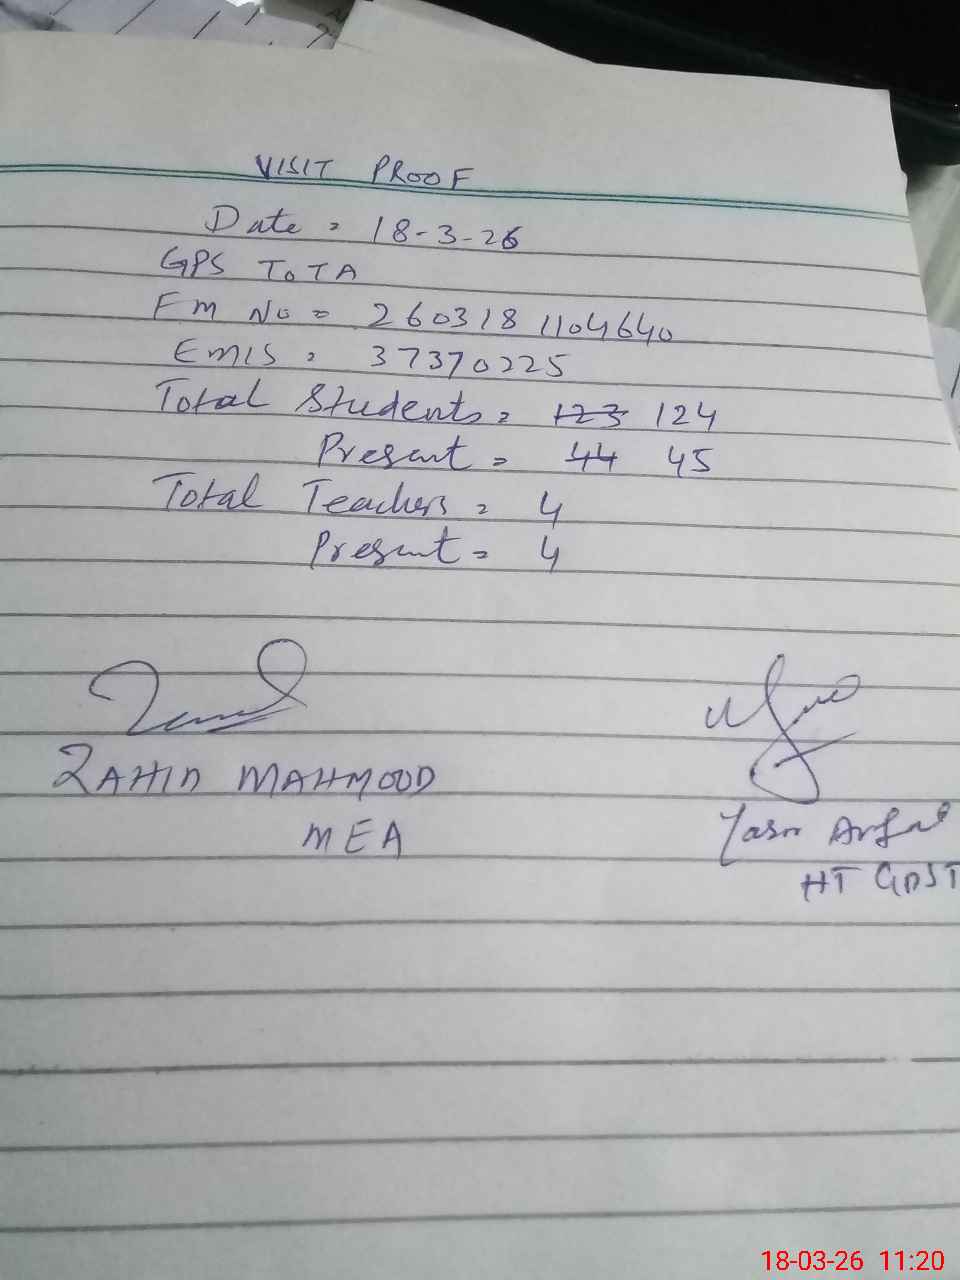 VISIT PROOF
Date = 18-3-26
GPS TOTA
FM No = 260318 1104640
EMIS = 37370225
Total Students = 123 124
Present = 44 45
Total Teachers = 4
Present = 4
ZAHID MAHMOOD
MEA
HT
18-03-26 11:20